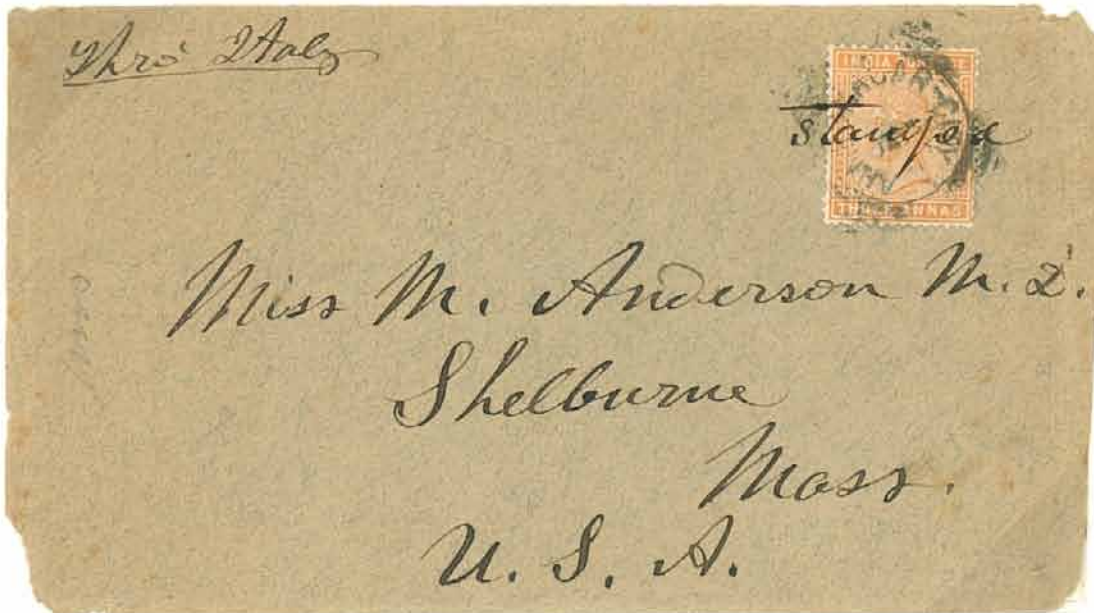 Thro' Italy
INDIA
stamped
ANNAS
Miss M. Anderson M. D.
Shelburne
Mass.
U. S. A.